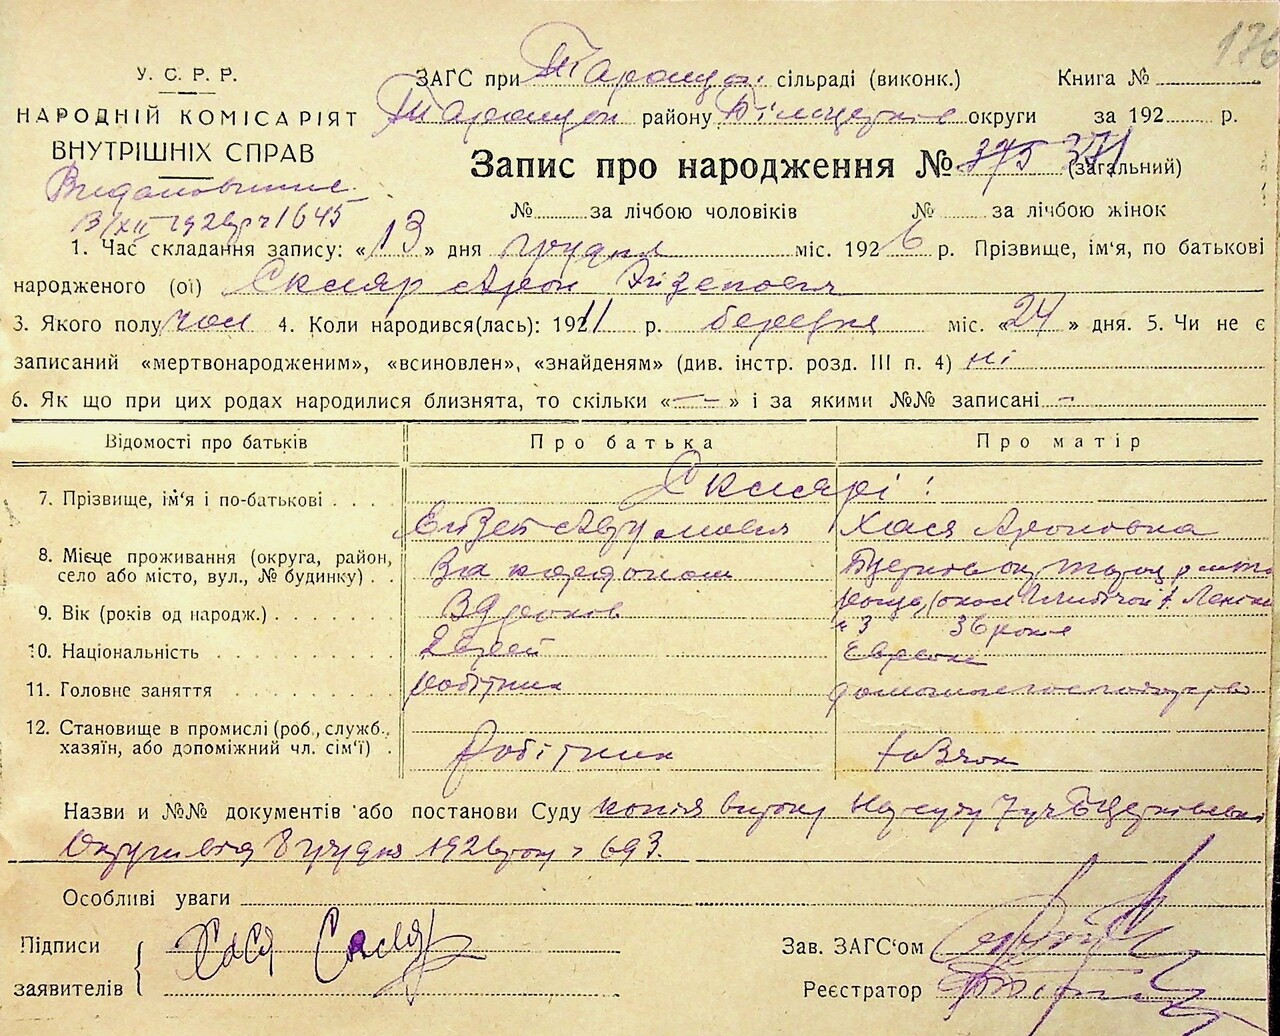 176
У. С. Р. Р.
НАРОДНІЙ КОМІСАРІЯТ
ВНУТРІШНІХ СПРАВ
13/XII 1926 р ч 1645
ЗАГС при Таращан. сільраді (виконк.) Книга №
Таращан району Білоцерків округи за 192 р.
Запис про народження № 375 371 (загальний)
№ за лічбою чоловіків № за лічбою жінок
1. Час складання запису: «13» дня грудня міс. 1926 р. Прізвище, ім'я, по батькові
народженого (ої) Скляр Арон
3. Якого полу чол 4. Коли народився(лась): 1911 р. березня міс. «24» дня. 5. Чи не є
записаний «мертвонародженим», «всиновлен», «знайденям» (див. інстр. розд. III п. 4) ні
6. Як що при цих родах народилися близнята, то скільки «— —» і за якими №№ записані —
Відомості про батьків Про батька Про матір
7. Прізвище, ім'я і по-батькові Склярі:
Аврумович Хася Ароновна
8. Місце проживання (округа, район,
село або місто, вул., № будинку) За кордоном
9. Вік (років од народж.) 39 років 36 років
10. Національність Еврей Еврейка
11. Головне заняття робітник домашнє господарство
12. Становище в промислі (роб., служб.,
хазяїн, або допоміжний чл. сім'ї) робітник
Назви и №№ документів або постанови Суду копія витоку Нарсуду 7 уч Бцерківської
Округи від 8 грудня 1926 року 693.
Особливі уваги
Підписи
заявителів Хася Скляр
Зав. ЗАГС'ом
Реєстратор